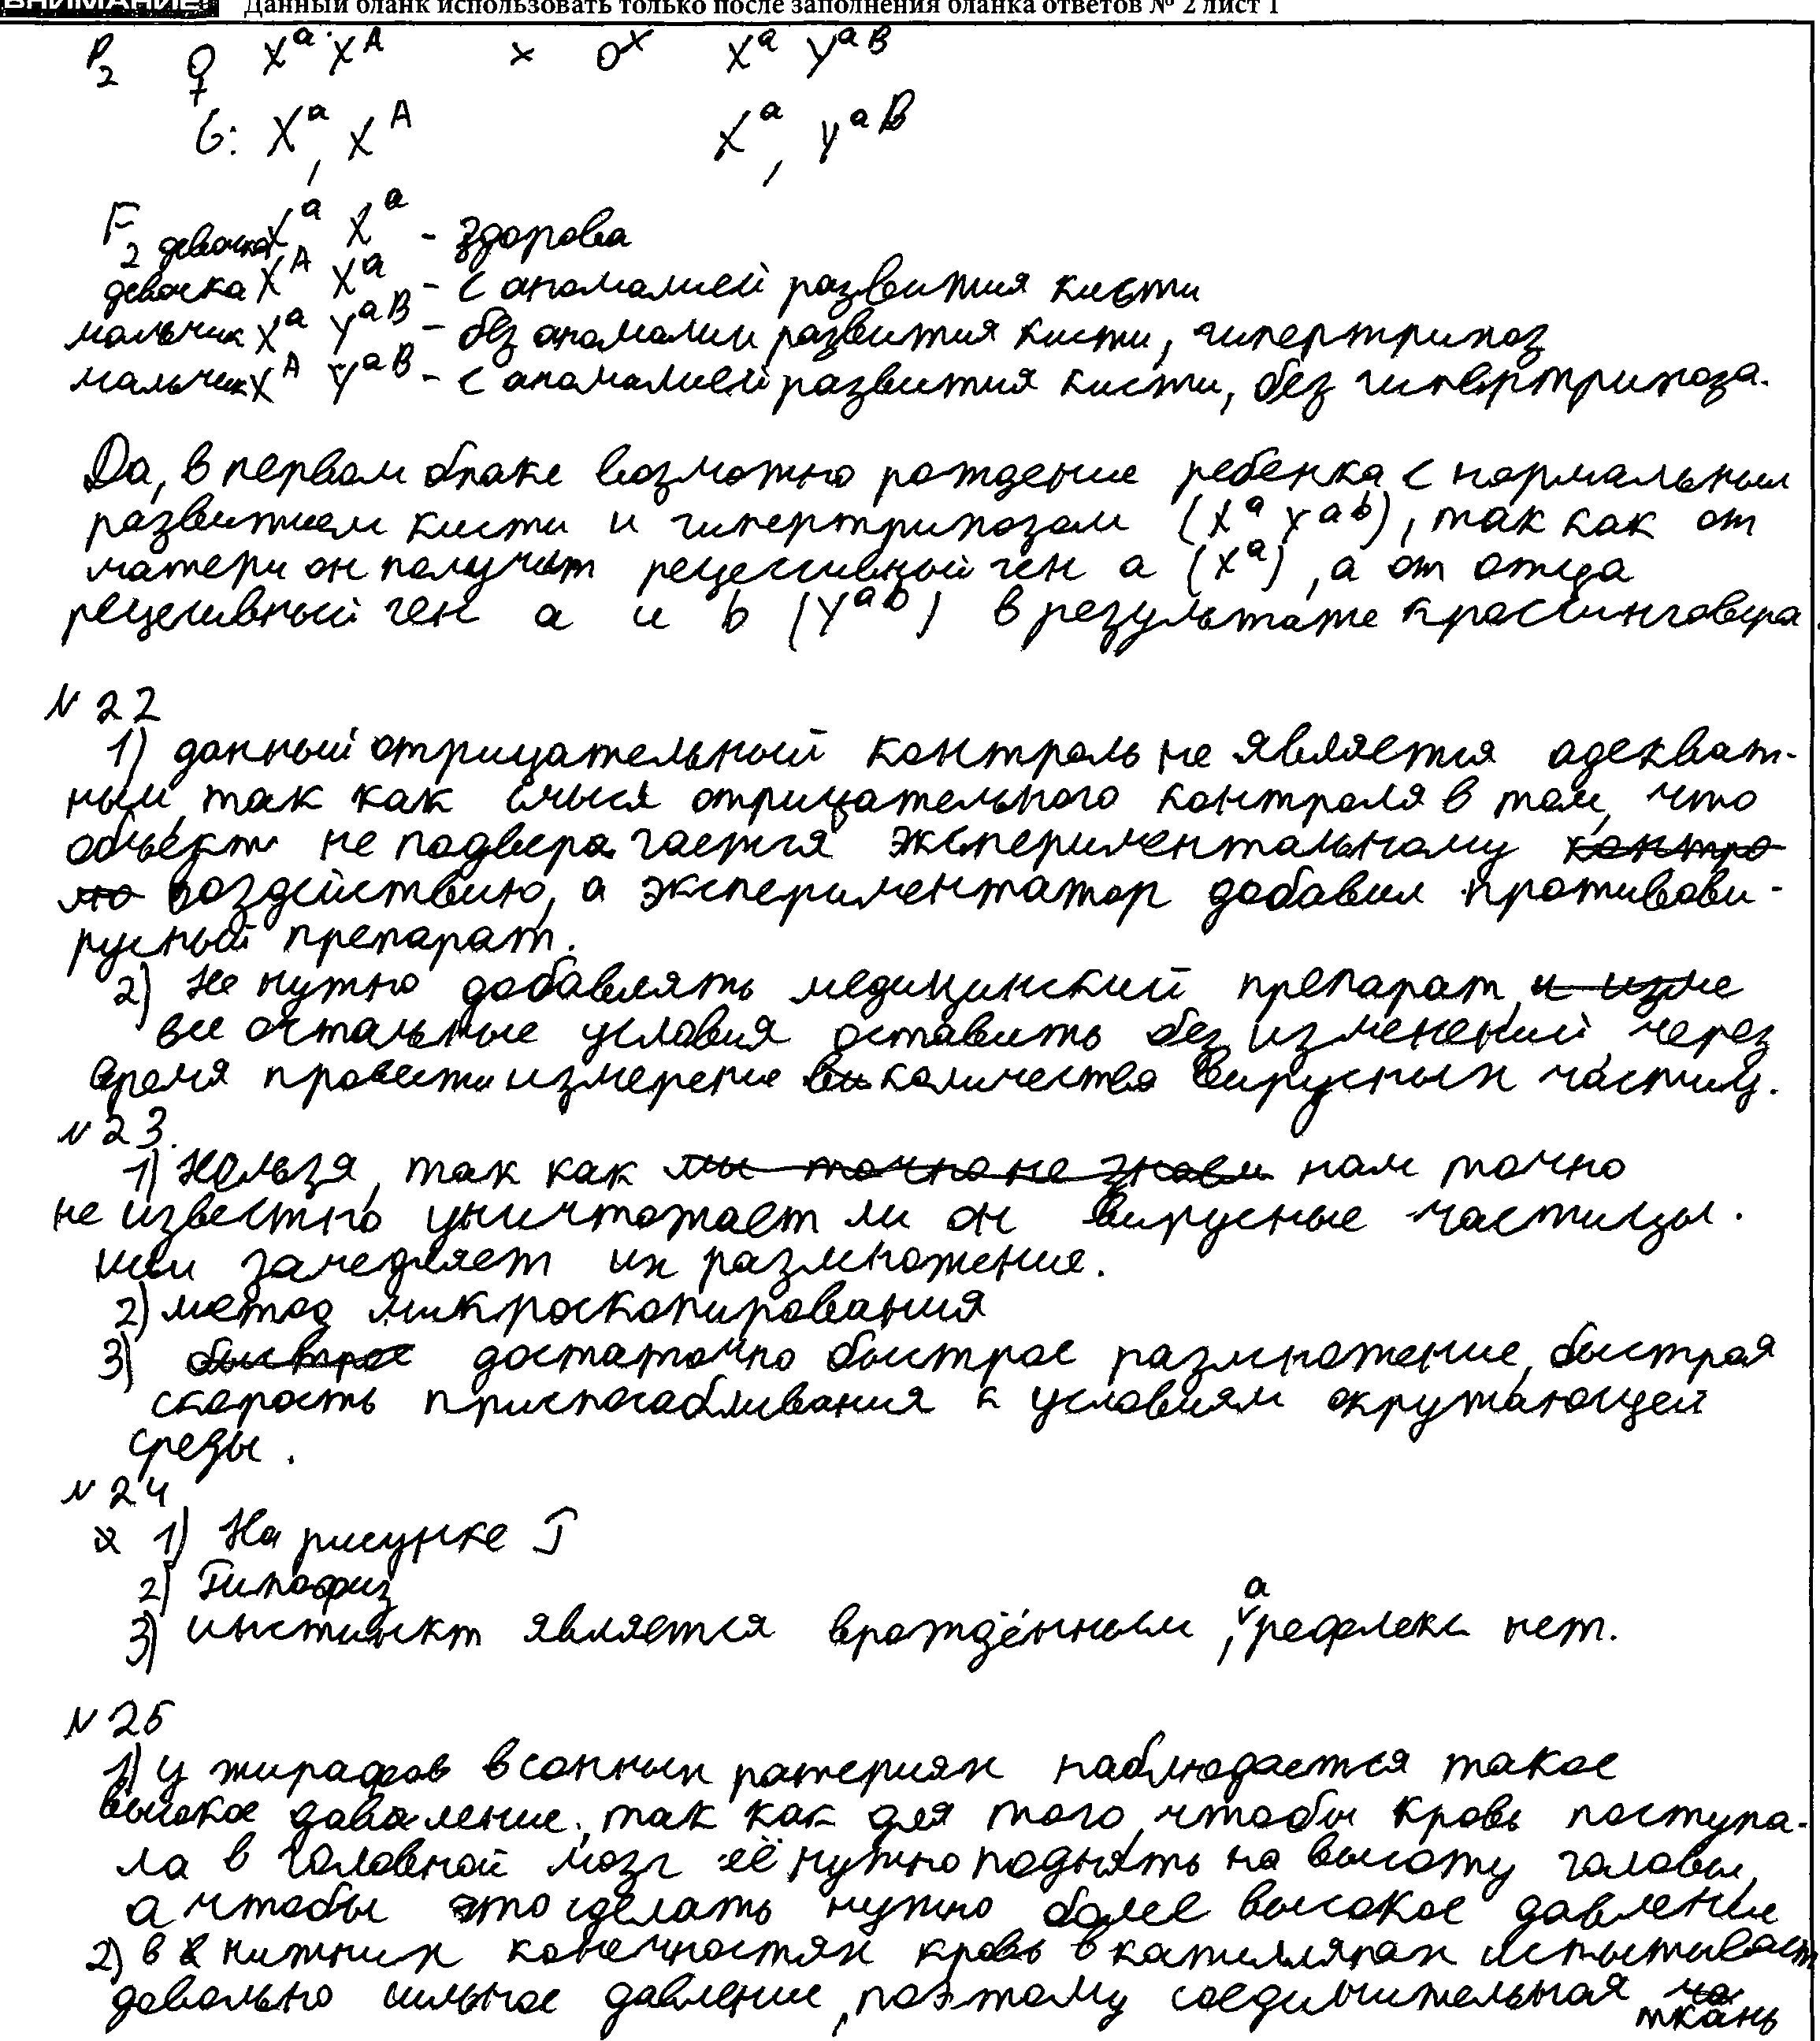 ВНИМАНИЕ! Данный бланк использовать только после заполнения бланка ответов № 2 лист 1
P₂ ♀ Xᵃ Xᴬ × ♂ Xᵃ Yᵃᴮ
G: Xᵃ, Xᴬ Xᵃ, Yᵃᴮ
F₂ девочка Xᵃ Xᵃ - здорова
девочка Xᴬ Xᵃ - с аномалией развития кисти
мальчик Xᵃ Yᵃᴮ - без аномалии развития кисти, гипертрихоз
мальчик Xᴬ Yᵃᴮ - с аномалией развития кисти, без гипертрихоза.
Да, в первом браке возможно рождение ребенка с нормальным
развитием кисти и гипертрихозом (Xᵃ Yᵃᵇ), так как от
матери он получит рецессивный ген а (Xᵃ), а от отца
рецесивный ген а и b (Yᵃᵇ) в результате кроссинговера.
N 22
1) данный отрицательный контроль не является адекват-
ным, так как смысл отрицательного контроля в том, что
объект не подвергается экспериментальному контро
лю воздействию, а экспериментатор добавил противови-
русный препарат.
2) Не нужно добавлять медицинский препарат, и изме
все остальные условия оставить без изменений, через
время провести измерение ви количества вирусных частиц.
N 23.
1) Нельзя, так как мы точно не знаем нам точно
не известно уничтожает ли он вирусные частицы.
или замедляет их размножение.
2) метод микроскопирования
3) быстрое достаточно быстрое размножение, быстрая
скорость приспосабливания к условиям окружающей
среды.
N 24
1) На рисунке
2) Гипофиз
3) инстинкт является врождённым, а рефлекс нет.
N 25
1) у жирафов в сонных ратериях наблюдается такое
высокое даваление, так как для того, чтобы кровь поступа-
ла в головной мозг её нужно поднять на высоту головы,
а чтобы это сделать нужно более высокое давление
2) в нижних конечностях кровь в капиллярах испытывает
довольно сильное давление, поэтому соединительная ткань